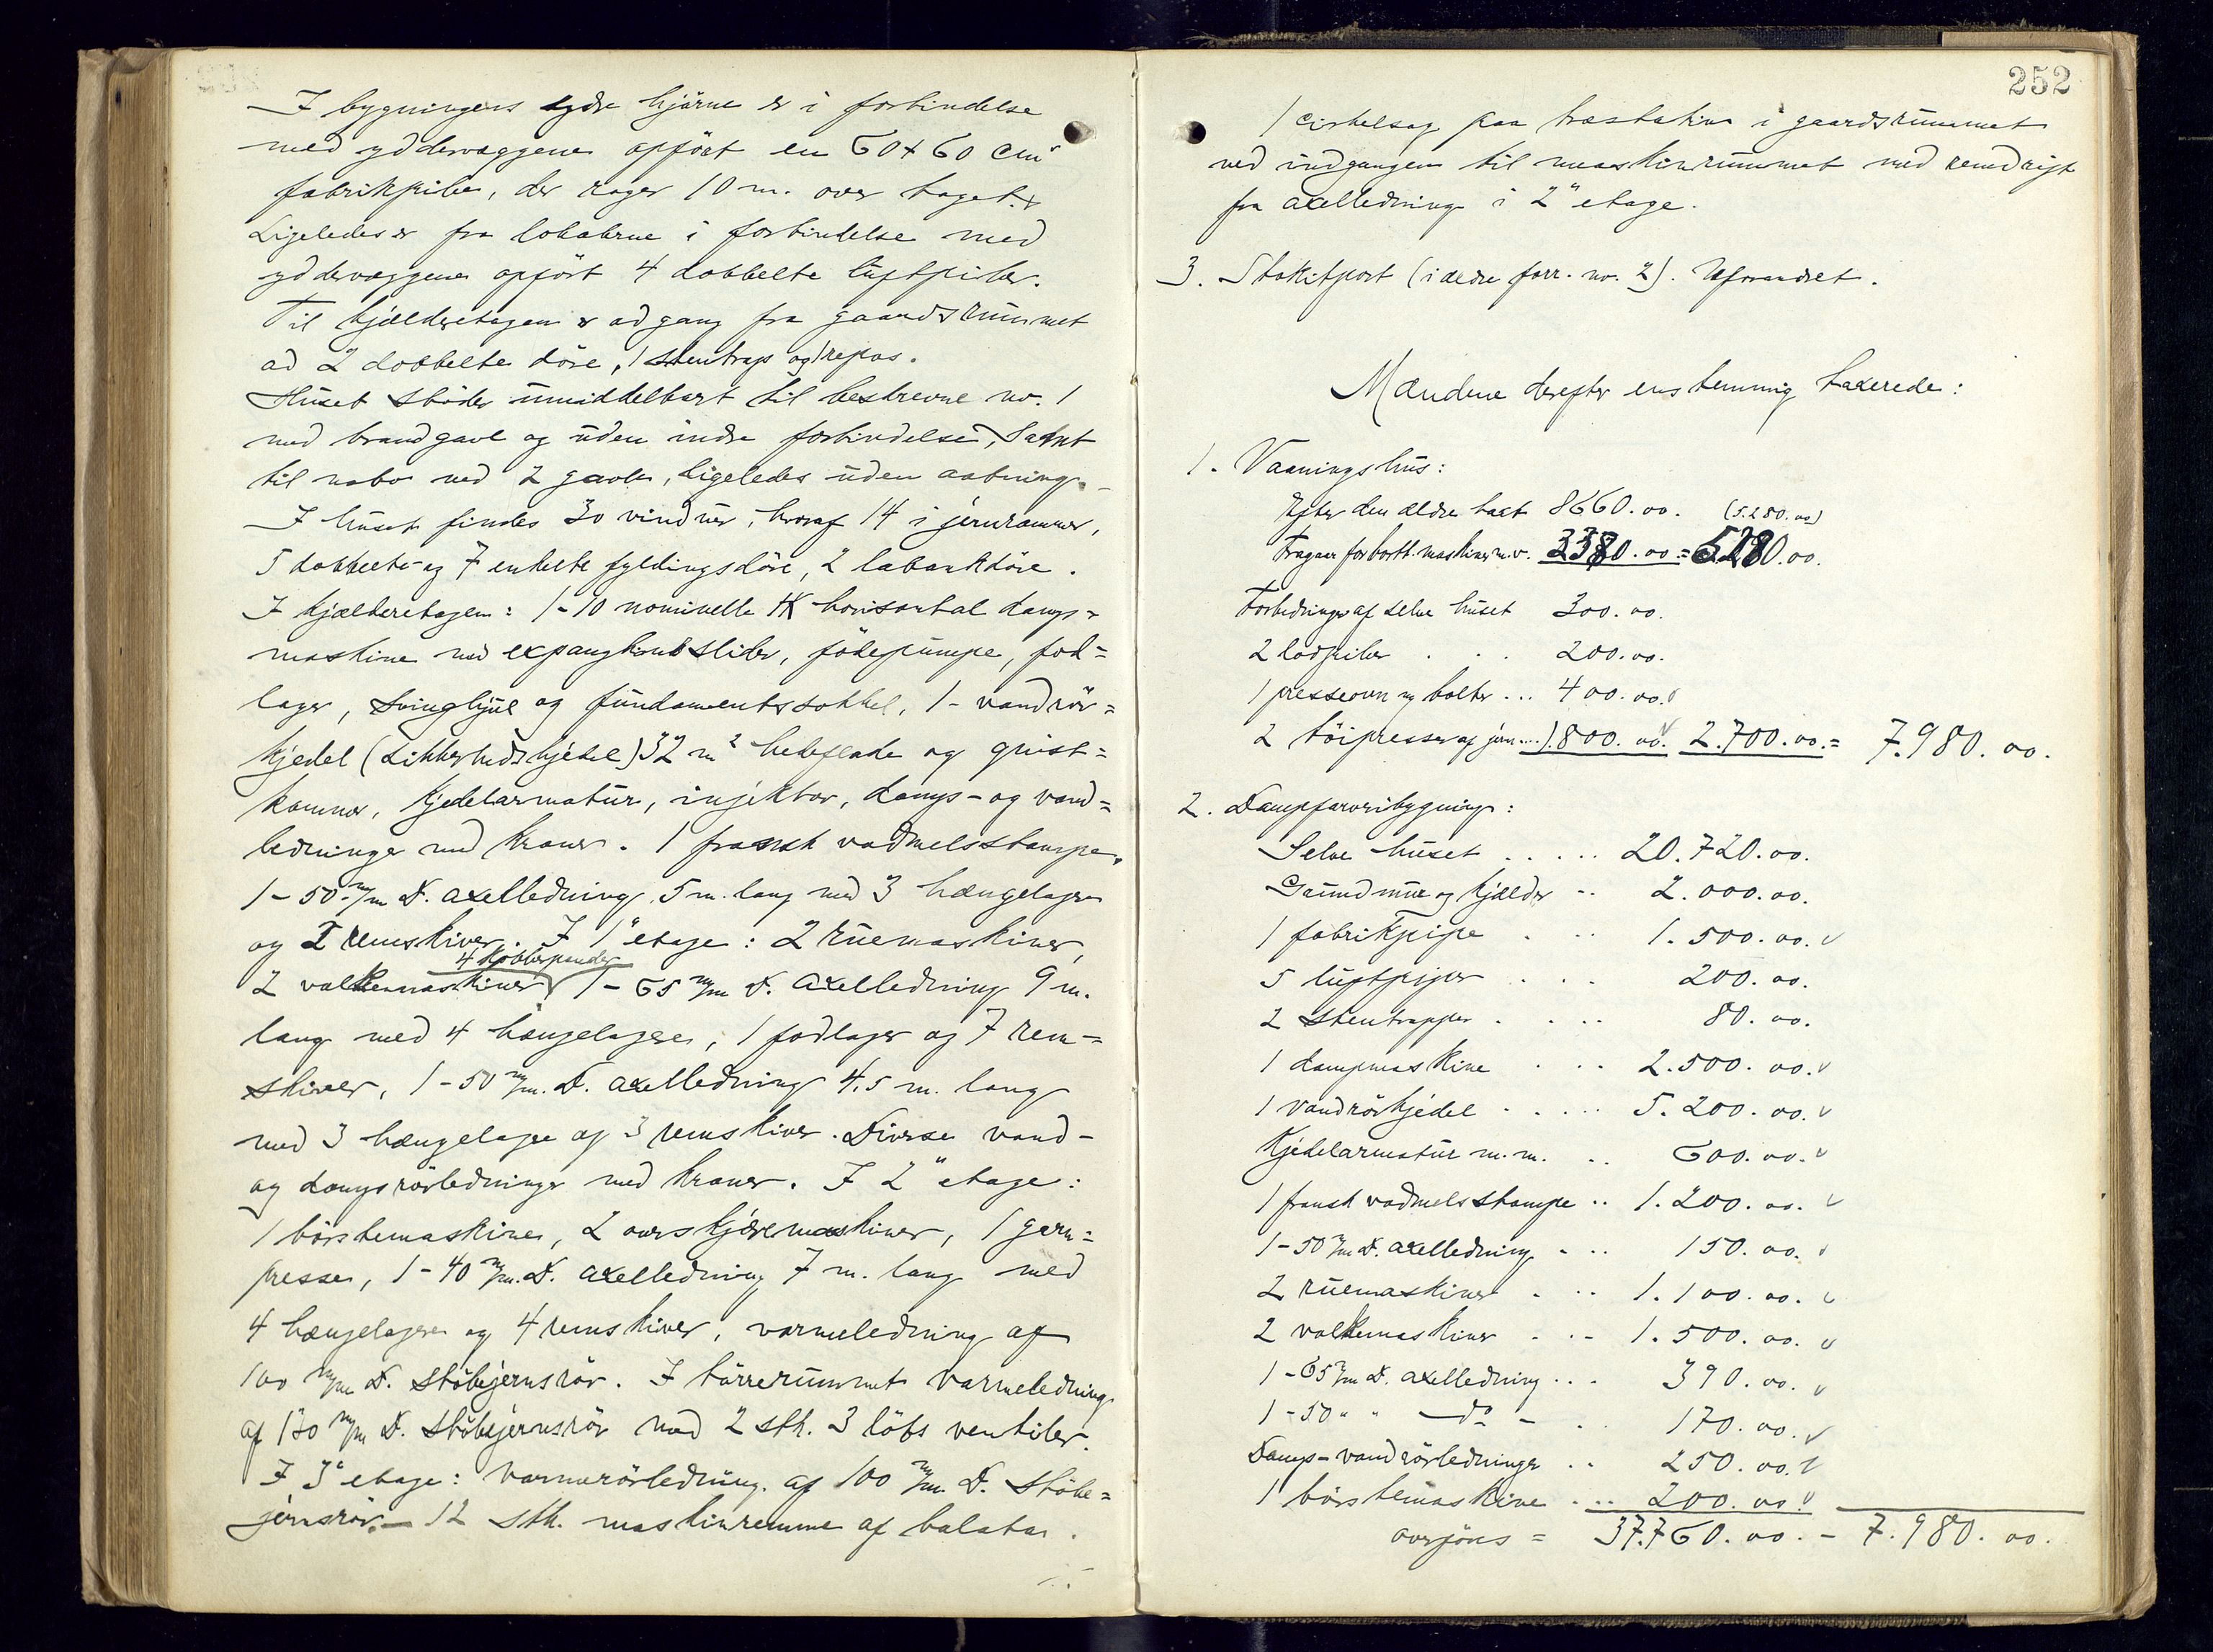 I bygningens sydre hjörne er i forbindelse
med yddervæggene opfört en 60 x 60 cm
fabrikpibe, der rager 10 m. over taget.
Ligeledes er fra lokalerne i forbindelse med
yddervæggene opfört 4 dobbelte luftpiber.
Til kjælderetagen er adgang fra gaardsrummet
ad 2 dobbelte döre, 1 stentrap og 1 repos.
Huset stöder umiddelbart til beskrevne no. 1
med brandgavl og uden indre forbindelse, samt
til nabo med 2 gavle, ligeledes uden aabning.
I huset findes 30 vinduer, hvoraf 14 i jernrammer,
5 dobbelte- og 7 enkelte fyldingsdöre, 2 labankdöre.
I kjælderetagen: 1-10 nominelle HK horisontal damp=
maskine med expansionsslider, födepumpe, fod=
lager, svinghjul og fundamentssokkel, 1- vandrör=
kjedel (sikkerhedskjedel) 32 m² hedeflade og gnist=
kammer, kjedelarmatur, injektor, damp- og vand=
ledninger med kraner. 1 fransk vadmelsstampe,
1-50 m/m D. axelledning, 5 m. lang med 3 hængelagere
og 2 remskiver. I 1" etage: 2 ruemaskiner,
4 kobberpander
2 valkemaskiner, 1-65 m/m D. axelledning 9 m.
lang med 4 hængelagere, 1 fodlager og 7 rem=
skiver, 1-50 m/m. D. axelledning 4,5 m. lang
med 3 hængelagere og 3 remskiver. Diverse vand-
og damprörledninger med kraner. I 2" etage:
1 börstemaskine, 2 overskjæremaskiner, 1 garn=
presse, 1-40 m/m. D. axelledning 7 m. lang med
4 hængelagere og 4 remskiver, varmeledning af
100 m/m D. stöbejernsrör. I törrerummet varmeledning
af 130 m/m D. stöbejernsrör med 2 stk. 3 löbs ventiler.
I 3" etage: varmerörledning af 100 m/m D. stöbe=
jernsrör. - 12 stk. maskinremme af balata.
252
1 cirkelsag paa træstativ i gaardsrummet
ved indgangen til maskinrummet med remdrift
fra axelledning i 2" etage.
3. Stakitport (i ældre forr. no. 2). Uforandret.
Mændene derefter enstemmig taxerede:
1. Vaaningshus:
Efter den ældre taxt 8660.00. (5.280.00)
Fragaar for bortt. maskiner m.v. 3380.00 = 5280.00.
Forbedringer af selve huset 300.00.
2 lodpiber . . . 200.00.
1 presseovn og bolter ... 400.00.
2 töipresser af jern .... 1.800.00. 2.700.00. = 7.980.00.
2. Dampfarveribygning:
Selve huset ..... 20.720.00.
Grundmur og kjælder .. 2.000.00.
1 fabrikpipe . .. 1.500.00. v
5 luftpiper . . . 200.00.
2 stentrapper . ... 80.00.
1 dampmaskine . .. 2.500.00. v
1 vandrörkjedel ..... 5.200.00. v
Kjedelarmatur m.m. .. 600.00. v
1 fransk vadmelsstampe .. 1.200.00. v
1-50 m/m D. axelledning . .. 150.00. v
2 ruemaskiner . .. 1.100.00. v
2 valkemaskiner . .. 1.500.00. v
1-65 m/m D. axelledning ... 390.00. v
1-50 " " - do - . 170.00. v
Damp-vandrörledninger .. 250.00. v
1 börstemaskine .... 200.00. v
overföres = 37.760.00. - 7.980.00.